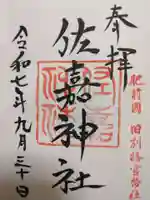 奉拝
肥前国 旧別格官幣社
佐嘉神社
令和七年九月三十日